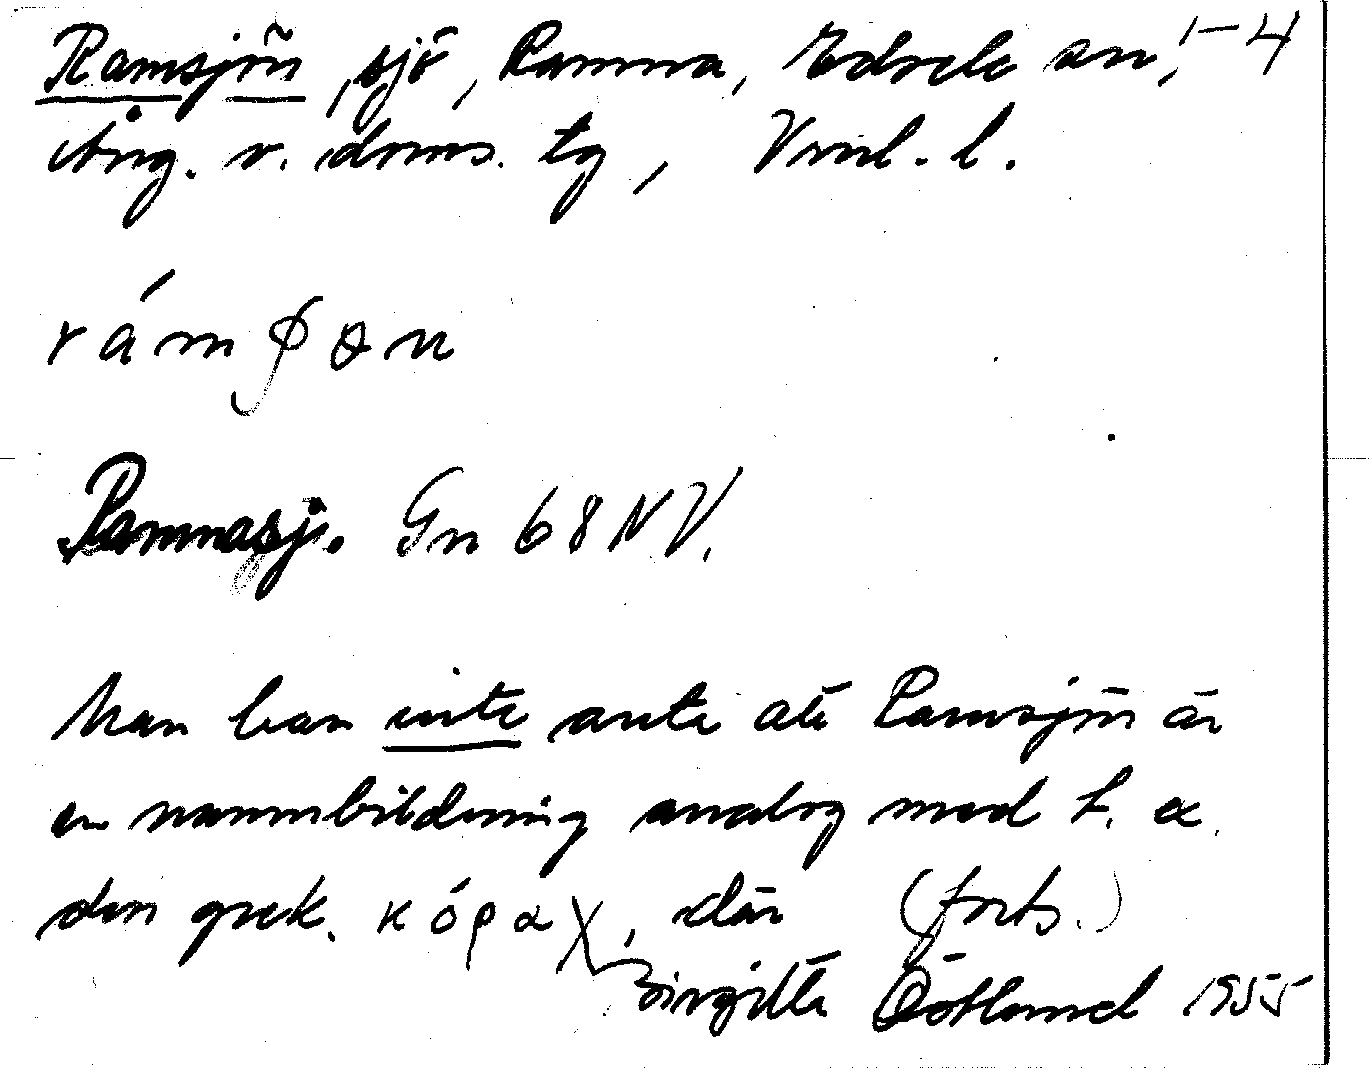 Ramsjön, sjö, Ramna, Edsele sn, 1-4
Ång. v. doms. tg, Vnrl. l.
rámʃɵn
Ramnasj. Gn 68 NV.
Man kan inte anta att Ramsjön är
en namnbildning analog med t. ex.
den grek. κόραχ, där (forts.)
Birgitta Östlund 1955